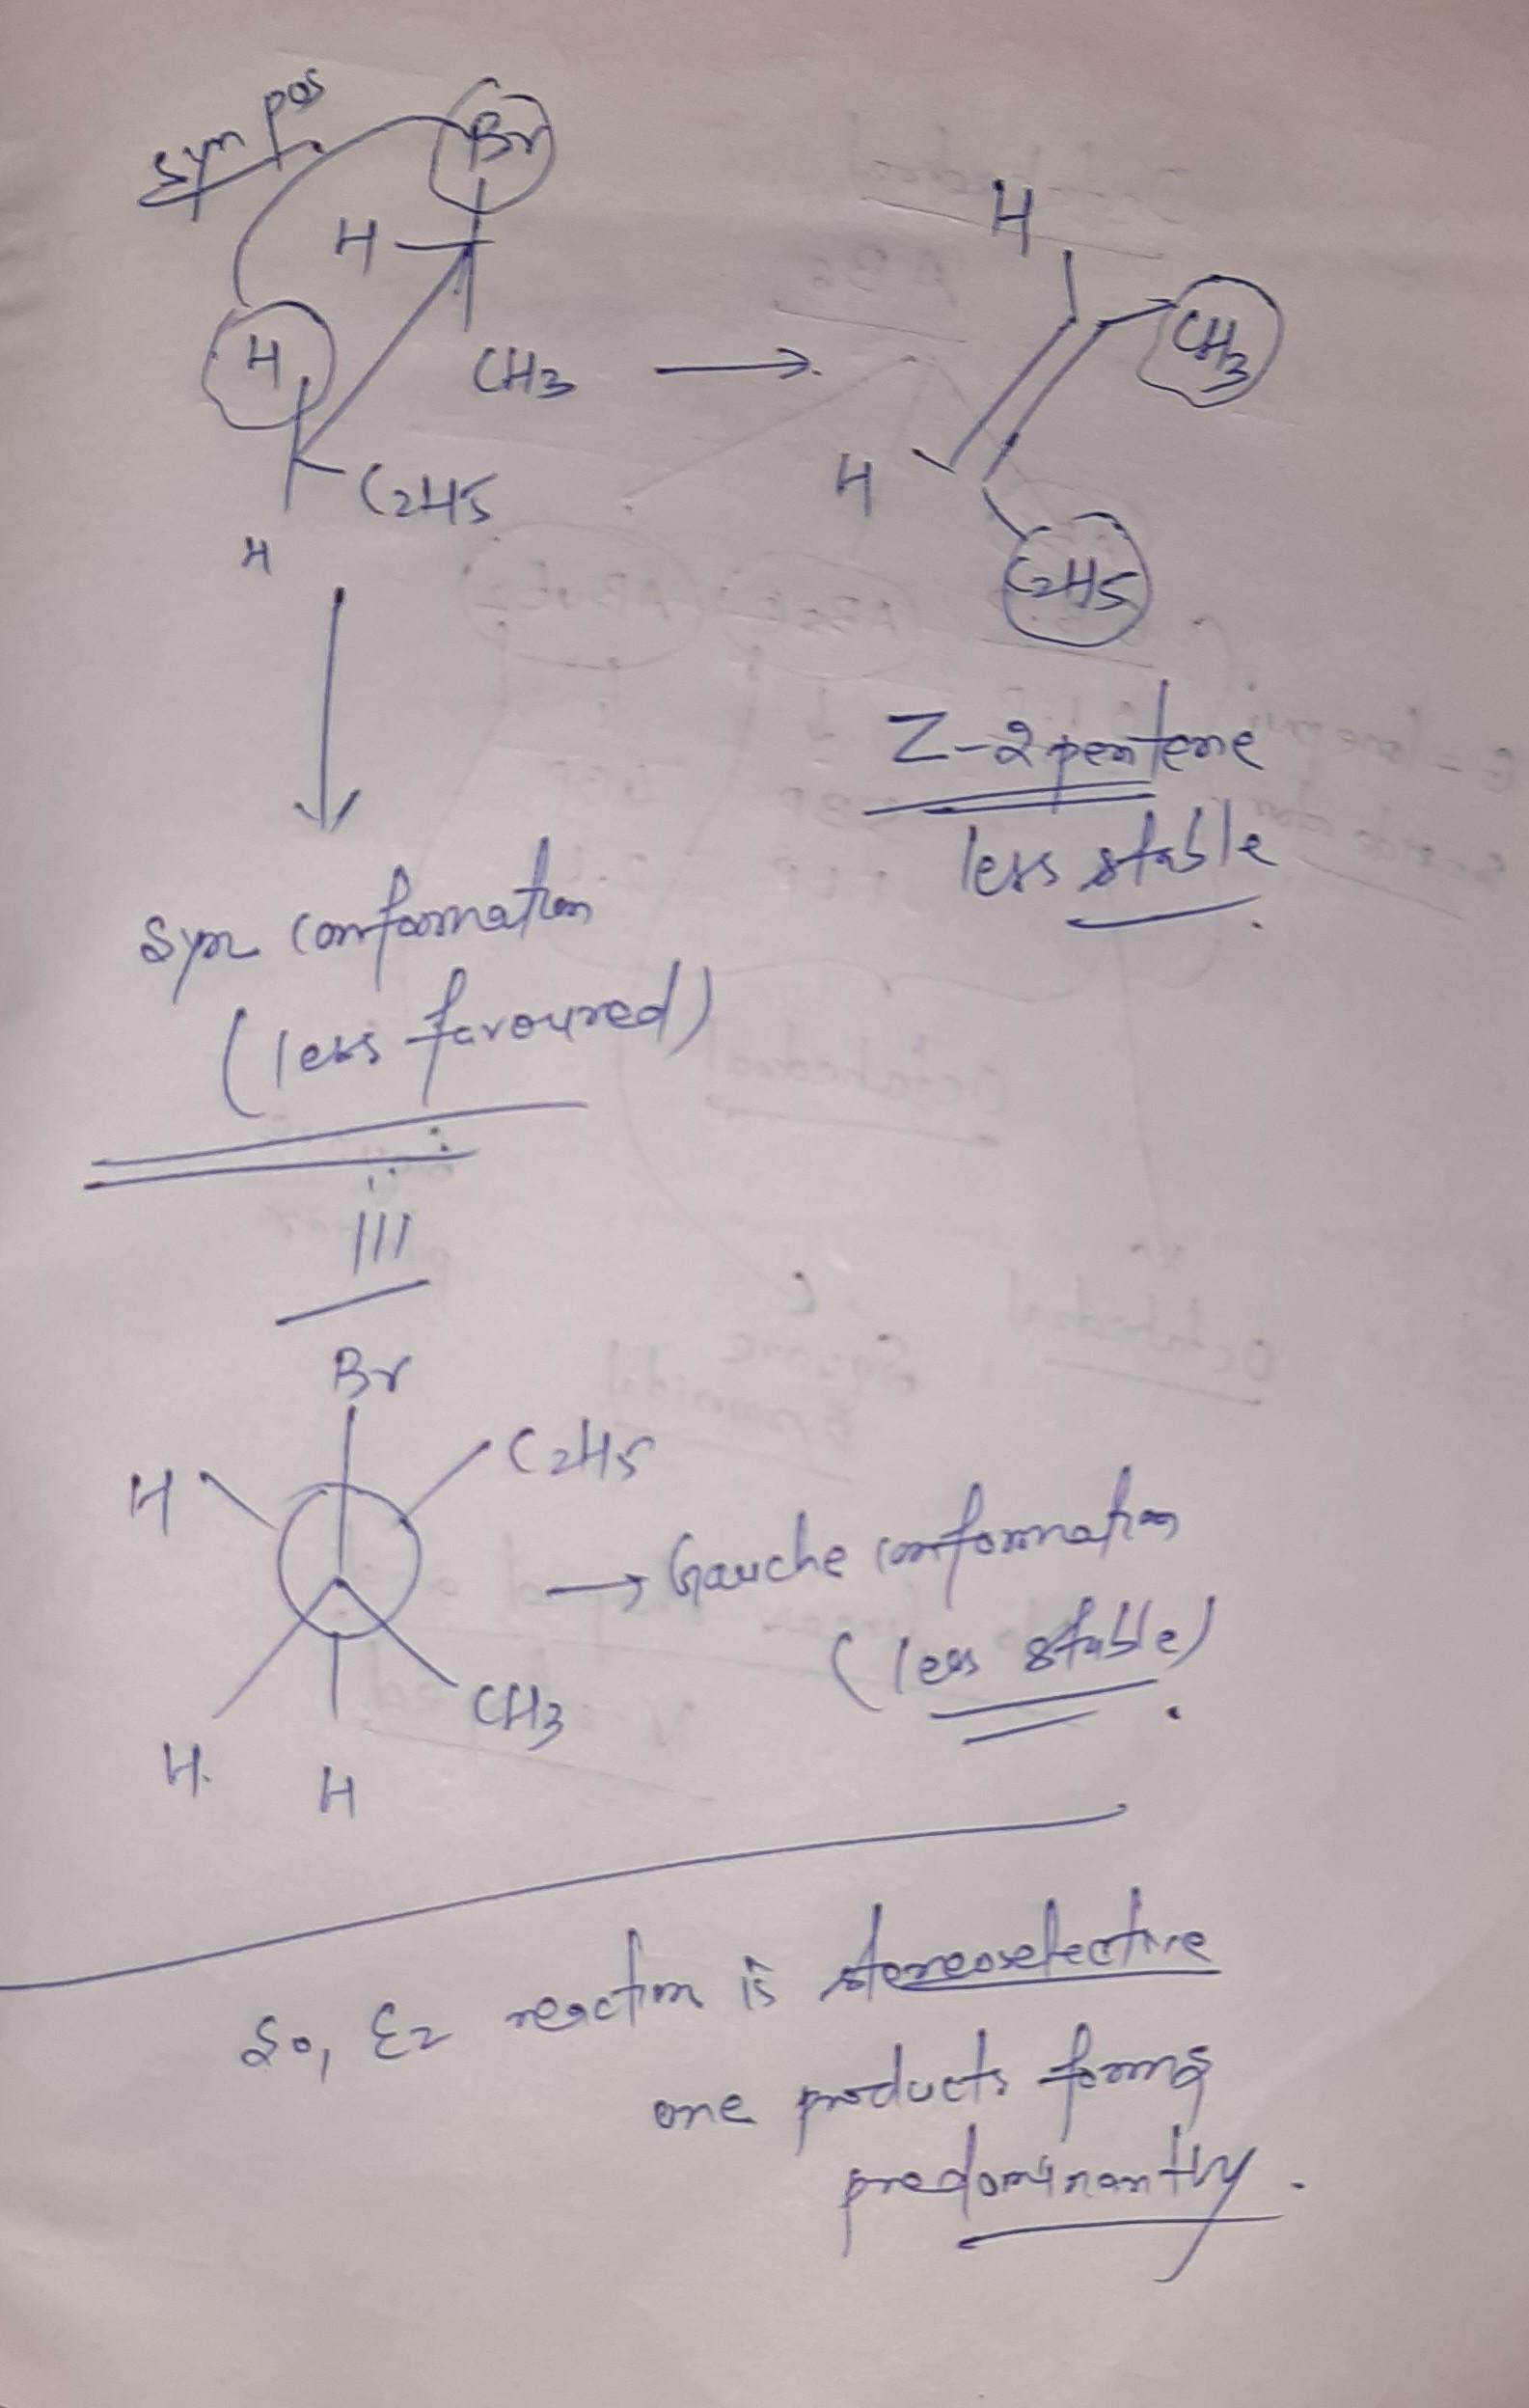 syn pos
Br
H
H
CH3
C2H5
H
H
CH3
H
C2H5
Z-2 pentene
less stable
syn conformation
(less favoured)
Br
H
C2H5
H
H
CH3
→ Gauche conformation
(less stable)
So, E2 reaction is stereoselective
one products forms
predominantly.